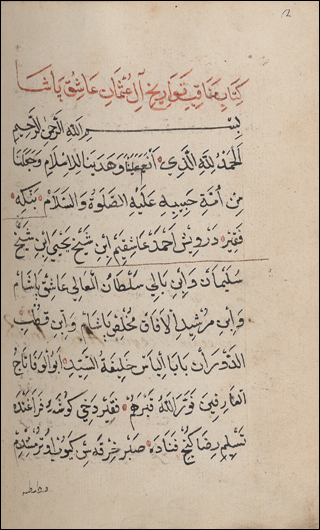 كتاب مناقب تواريخ آل عثمان عاشق پاشا
بسم الله الرحمن الرحيم
الحمد لله الذي انعم علينا وهدينا للاسلام وجعلنا
من امة حبيبه عليه الصلوة والسلام بنكه
فقيرم درويش احمد عاشقيم ابن شيخ يحيى ابن شيخ
سليمان وابن بالي سلطان المعالي عاشق پاشام
وابن مرشد الآفاق مخلص پاشام وابن قطب
الدوران بابا الياس خليفة السيد ابو الوفا تاج
العارفين نور الله قبرهم فقير دخي گوشه فراغتده
تسليم رضا كنج فناده صبر خرقه سن كيوب اوتورمشدم